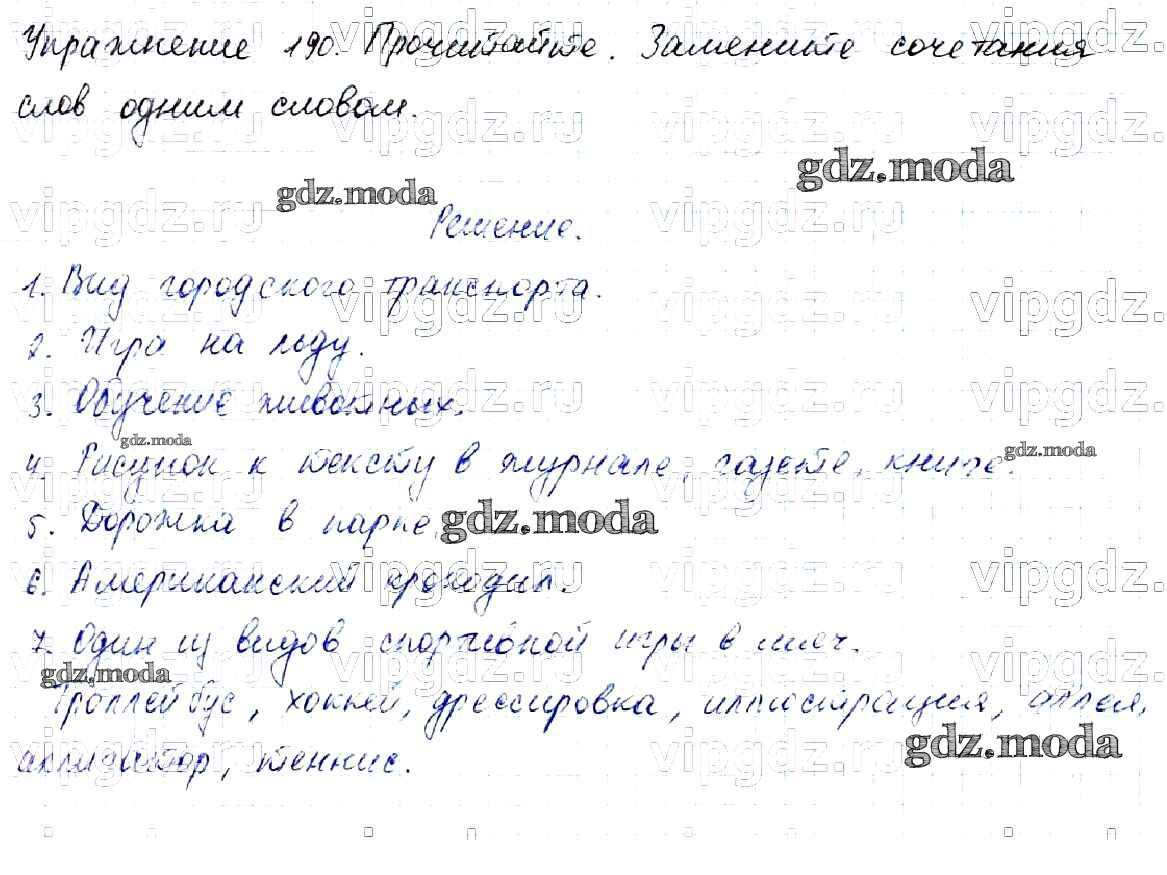 Упражнение 190. Прочитайте. Замените сочетания
слов одним словом.
gdz.moda
gdz.moda
Решение.
1. Вид городского транспорта.
2. Игра на льду.
3. Обучение животных.
gdz.moda
4. Рисунок к тексту в журнале, газете, книге.
gdz.moda
5. Дорожка в парке.
gdz.moda
6. Американский крокодил.
7. Один из видов спортивной игры в мяч.
gdz.moda
Троллейбус, хоккей, дрессировка, иллюстрация, аллея,
аллигатор, теннис.
gdz.moda
vipgdz.ru